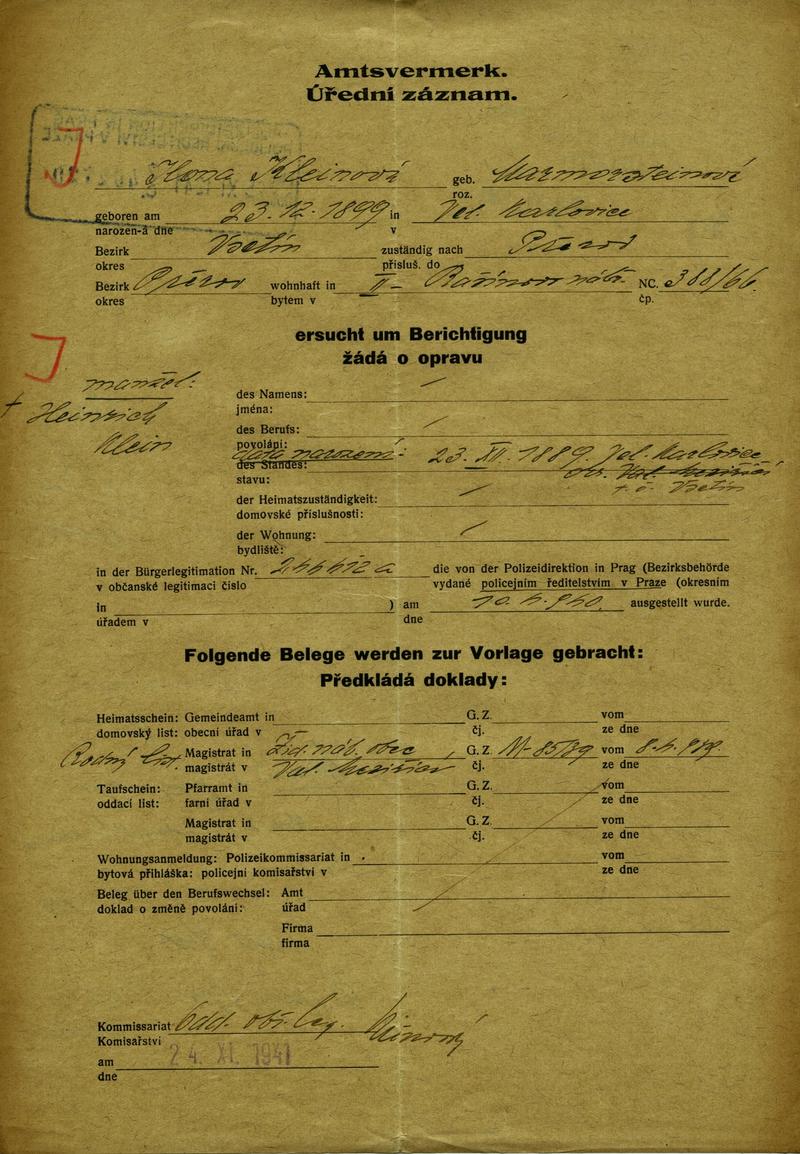 Amtsvermerk.
Úřední záznam.
Kleinová geb.
roz.
geboren am 23. 12. 1899 in Vel. Karlovice
narozen-á dne v
Bezirk Vsetín zuständig nach
okres přísluš. do
Bezirk wohnhaft in II - nám. NC. 388/66.
okres bytem v čp.
ersucht um Berichtigung
žádá o opravu
J
manžel:
† Heinrich
Klein
des Namens:
jména:
des Berufs:
povolání:
data narození: 23. XII. 1889. Vel. Karlovice,
des Standes:
stavu: Vsetín
der Heimatszuständigkeit:
domovské příslušnosti:
der Wohnung:
bydliště:
in der Bürgerlegitimation Nr. die von der Polizeidirektion in Prag (Bezirksbehörde
v občanské legitimaci číslo vydané policejním ředitelstvím v Praze (okresním
in ) am ausgestellt wurde.
úřadem v dne
Folgende Belege werden zur Vorlage gebracht:
Předkládá doklady:
Heimatsschein: Gemeindeamt in G. Z. vom
domovský list: obecní úřad v čj. ze dne
Rodný list Magistrat in Žid. náb. obec, G. Z. vom
magistrát v Val. Meziříčí čj. ze dne
Taufschein: Pfarramt in G. Z. vom
oddací list: farní úřad v čj. ze dne
Magistrat in G. Z. vom
magistrát v čj. ze dne
Wohnungsanmeldung: Polizeikommissariat in vom
bytová přihláška: policejní komisařství v ze dne
Beleg über den Berufswechsel: Amt
doklad o změně povolání: úřad
Firma
firma
Kommissariat Odd. obč. leg.
Komisařství
am 24. XI. 1941
dne